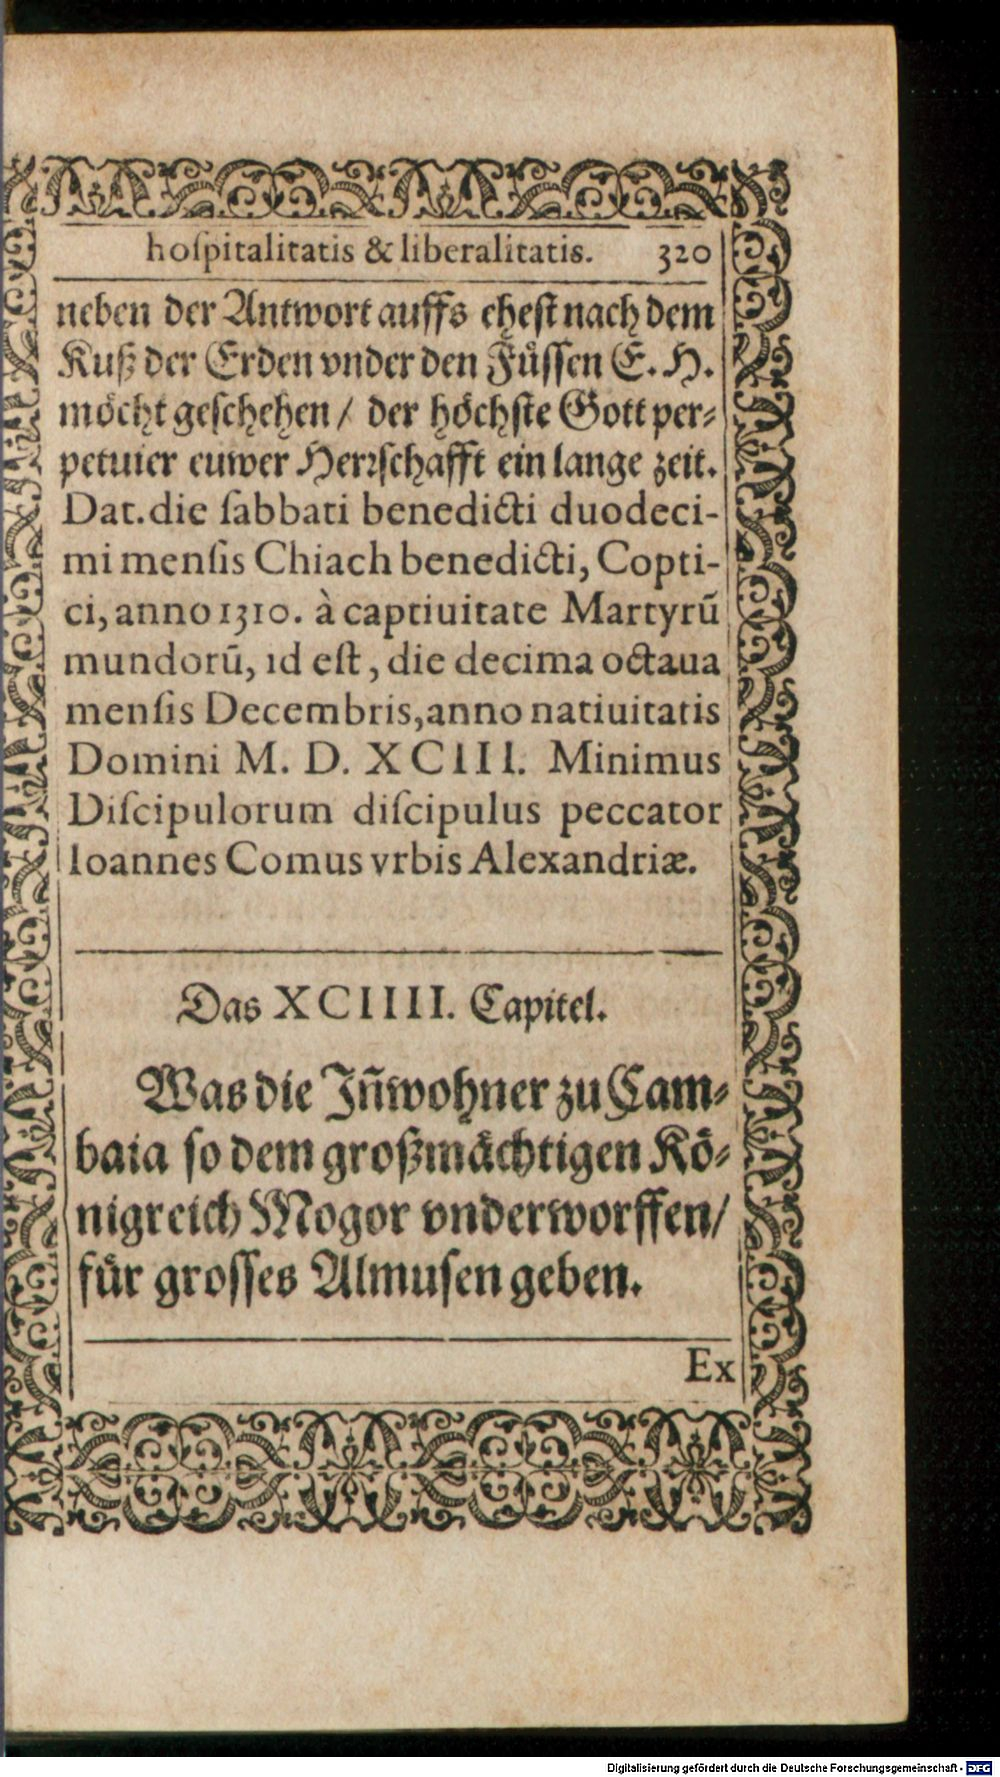 hoſpitalitatis & liberalitatis. 320
neben der Antwort auffs eheſt nach dem
Kuß der Erden vnder den Fuͤſſen E. H.
moͤcht geſchehen / der hoͤchſte Gott per⸗
petuier euwer Herꝛſchafft ein lange zeit.
Dat. die ſabbati benedicti duodeci-
mi menſis Chiach benedicti, Copti-
ci, anno 1310. à captiuitate Martyrũ
mundorũ, id eſt, die decima octaua
menſis Decembris, anno natiuitatis
Domini M. D. XCIII. Minimus
Diſcipulorum diſcipulus peccator
Ioannes Comus vrbis Alexandriæ.
Das XCIIII. Capitel.
Was die Jñwohner zu Cam⸗
baia ſo dem großmaͤchtigen Koͤ⸗
nigreich Mogor vnderworffen /
fuͤr groſſes Almuſen geben.
Ex
Digitalisierung gefördert durch die Deutsche Forschungsgemeinschaft - DFG